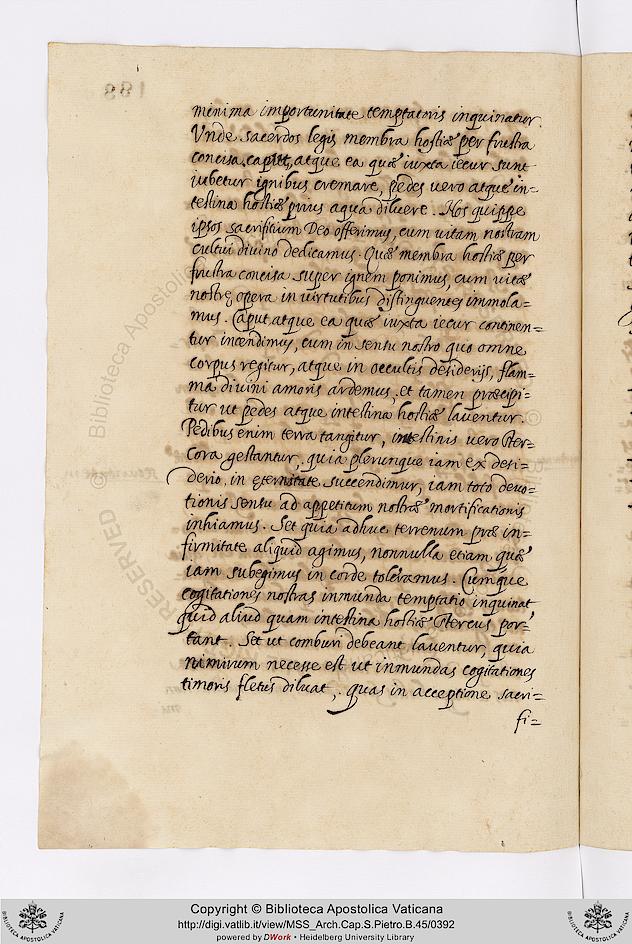 minima importunitate temptatoris inquinatur.
Vnde sacerdos legis membra hostiæ per frustra
concisa, caput, atque ea quæ iuxta iecur sunt
iubetur ignibus cremare, pedes uero atque in=
testina hostiæ prius aqua diluere. Nos quippe
ipsos sacrificium Deo offerimus, cum uitam nostram
cultui diuino dedicamus. Quæ membra hostiæ per
frustra concisa super ignem ponimus, cum uitæ
nostrę opera in uirtutibus distinguentes immola=
mus. Caput atque ea quæ iuxta iecur continen=
tur incendimus, cum in sensu nostro quo omne
corpus regitur, atque in occultis desiderijs, flam=
ma diuini amoris ardemus, et tamen præcipi=
tur ut pedes atque intestina hostiæ lauentur.
Pedibus enim terra tangitur, intestinis uero ster=
cora gestantur, quia plerunque iam ex desi=
derio, in ęternitate succendimur, iam toto deuo=
tionis sensu ad appetitum nostræ mortificationis
inhiamus. Set quia adhuc terrenum præ in=
firmitate aliquid agimus, nonnulla etiam quæ
iam subegimus in corde toleramus. Cumque
cogitationes nostras inmunda temptatio inquinat
quid aliud quam intestina hostiæ stercus por=
tant. Set ut comburi debeant lauentur, quia
nimirum necesse est ut inmundas cogitationes
timoris fletus diluat, quas in acceptione sacri=
fi=
188
© Biblioteca Apostolica
RESERVED ©
Copyright © Biblioteca Apostolica Vaticana
http://digi.vatlib.it/view/MSS_Arch.Cap.S.Pietro.B.45/0392
powered by DWork • Heidelberg University Library
BIBLIOTECA APOSTOLICA VATICANA
BIBLIOTECA APOSTOLICA VATICANA